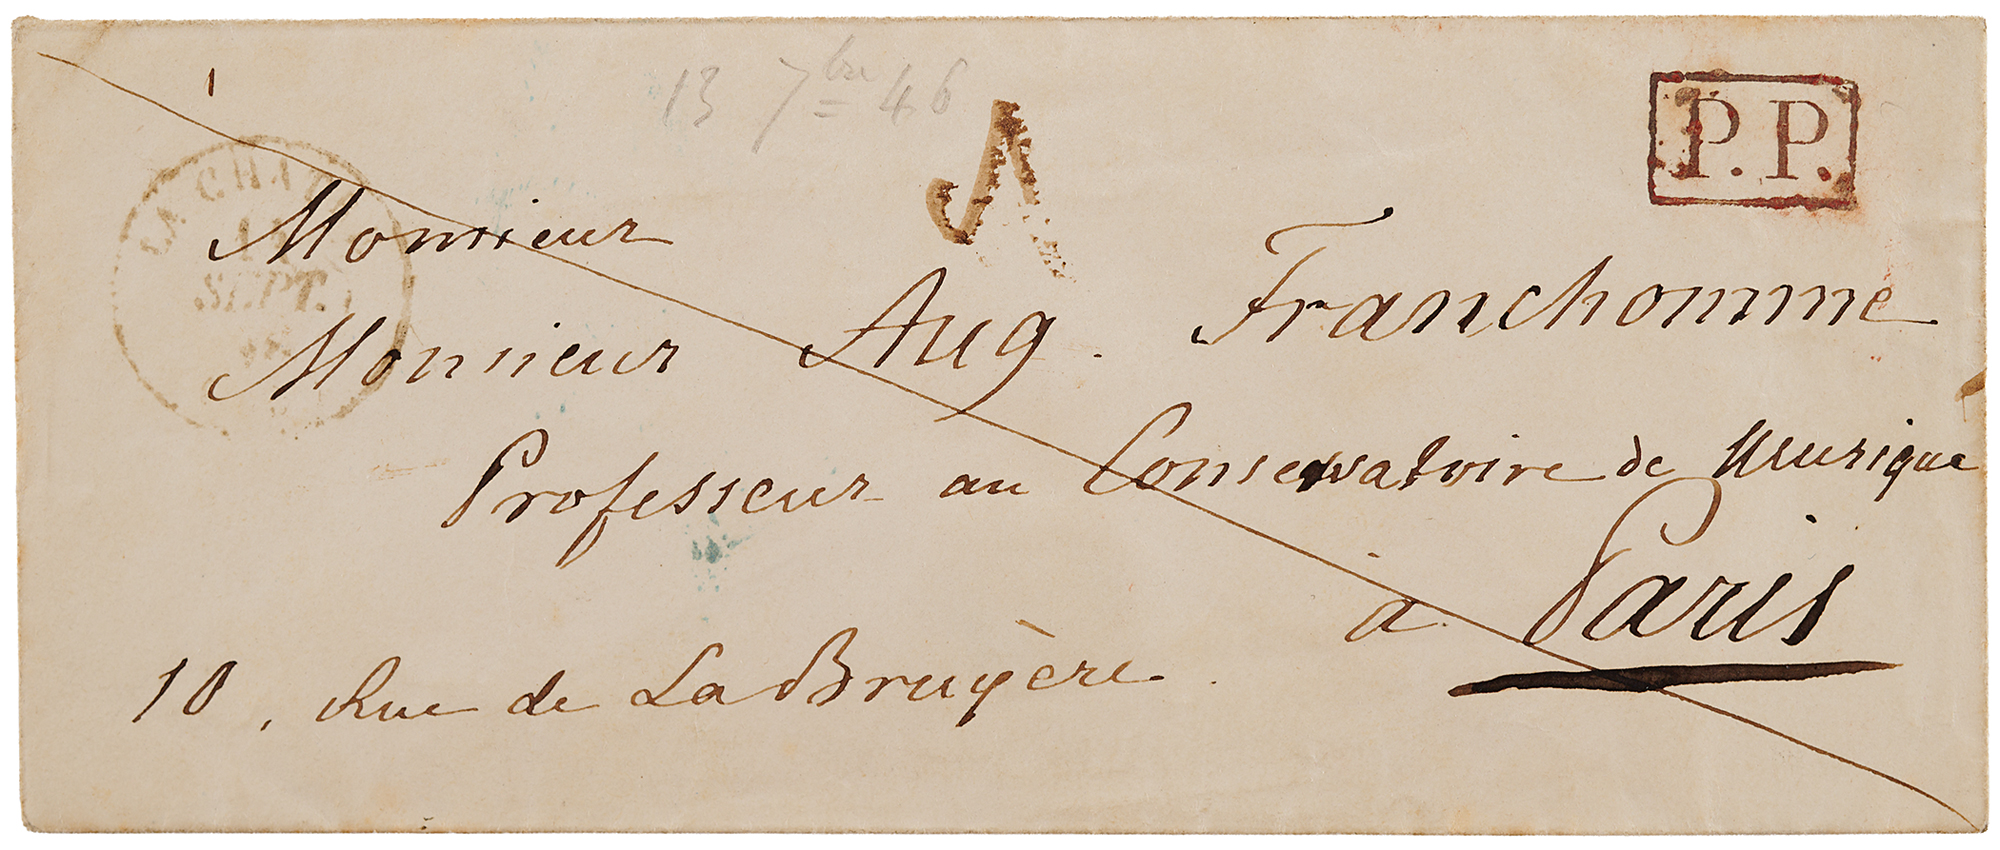 13 7bre 46
P.P.
LA CHAT
SEPT.
Monsieur
Monsieur Aug. Franchomme
Professeur au Conservatoire de Musique
à Paris
10, Rue de La Bruyère.